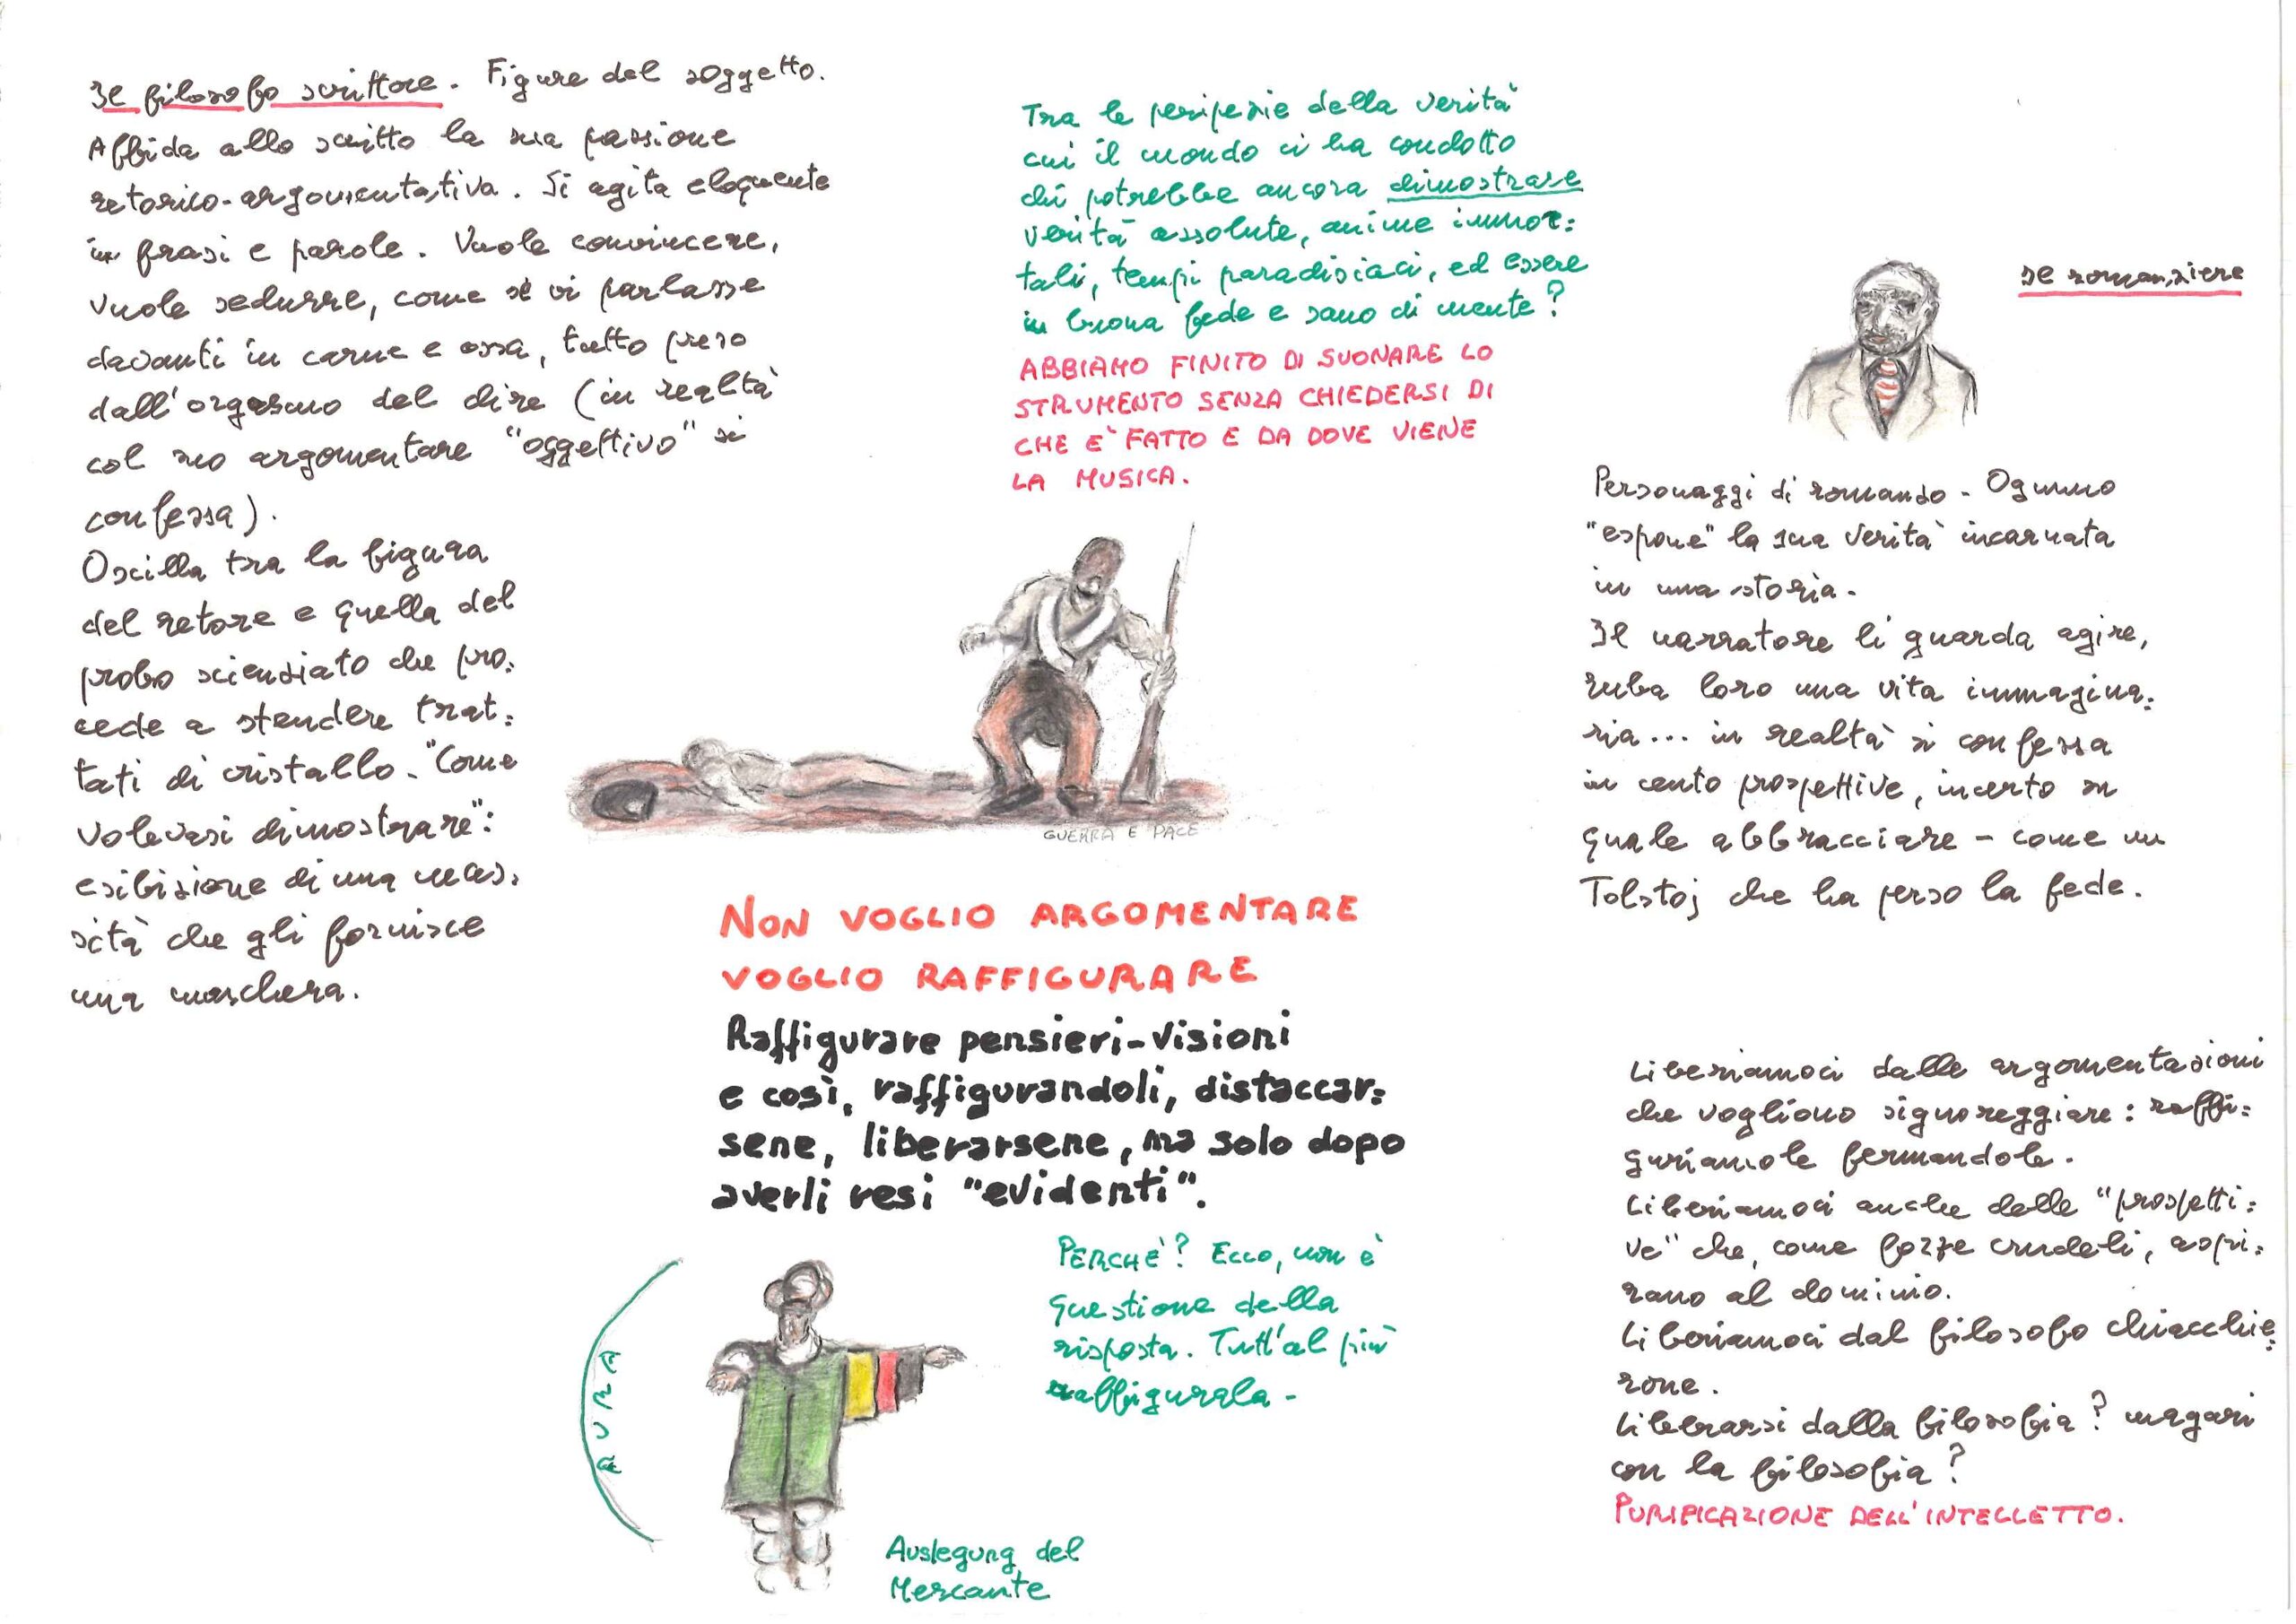 Il filosofo scrittore. Figure del soggetto.
Affida allo scritto la sua passione
retorico-argomentativa. Si agita eloquente
in frasi e parole. Vuole convincere,
vuole sedurre, come se vi parlasse
davanti in carne e ossa, tutto preso
dall'orgasmo del dire (in realtà
col suo argomentare "oggettivo" si
confessa).
Oscilla tra la figura
del retore e quella del
probo scienziato che pro:
cede a stendere trat:
tati di cristallo. "Come
volevasi dimostrare":
esibizione di una neces:
sità che gli fornisce
una maschera.
Tra le peripezie della verità
cui il mondo ci ha condotto
chi potrebbe ancora dimostrare
verità assolute, anime immor:
tali, tempi paradisiaci, ed essere
in buona fede e sano di mente?
ABBIAMO FINITO DI SUONARE LO
STRUMENTO SENZA CHIEDERSI DI
CHE E' FATTO E DA DOVE VIENE
LA MUSICA.
GUERRA E PACE
NON VOGLIO ARGOMENTARE
VOGLIO RAFFIGURARE
Raffigurare pensieri-visioni
e così, raffigurandoli, distaccar:
sene, liberarsene, ma solo dopo
averli resi "evidenti".
PERCHE'? Ecco, non è
questione della
risposta. Tutt'al più
raffigurala -
AURA
Auslegung del
Mercante
Il romanziere
Personaggi di romanzo - Ognuno
"espone" la sua verità incarnata
in una storia -
Il narratore li guarda agire,
ruba loro una vita immagina:
ria... in realtà si confessa
in cento prospettive, incerto su
quale abbracciare - come un
Tolstoj che ha perso la fede.
Liberiamoci dalle argomentazioni
che vogliono signoreggiare: raffi:
guriamole fermandole.
Liberiamoci anche delle "prospetti:
ve" che, come forze crudeli, aspi:
rano al dominio.
Liberiamoci dal filosofo chiacchie:
rone.
Liberarsi dalla filosofia? magari
con la filosofia?
PURIFICAZIONE DELL'INTELLETTO.